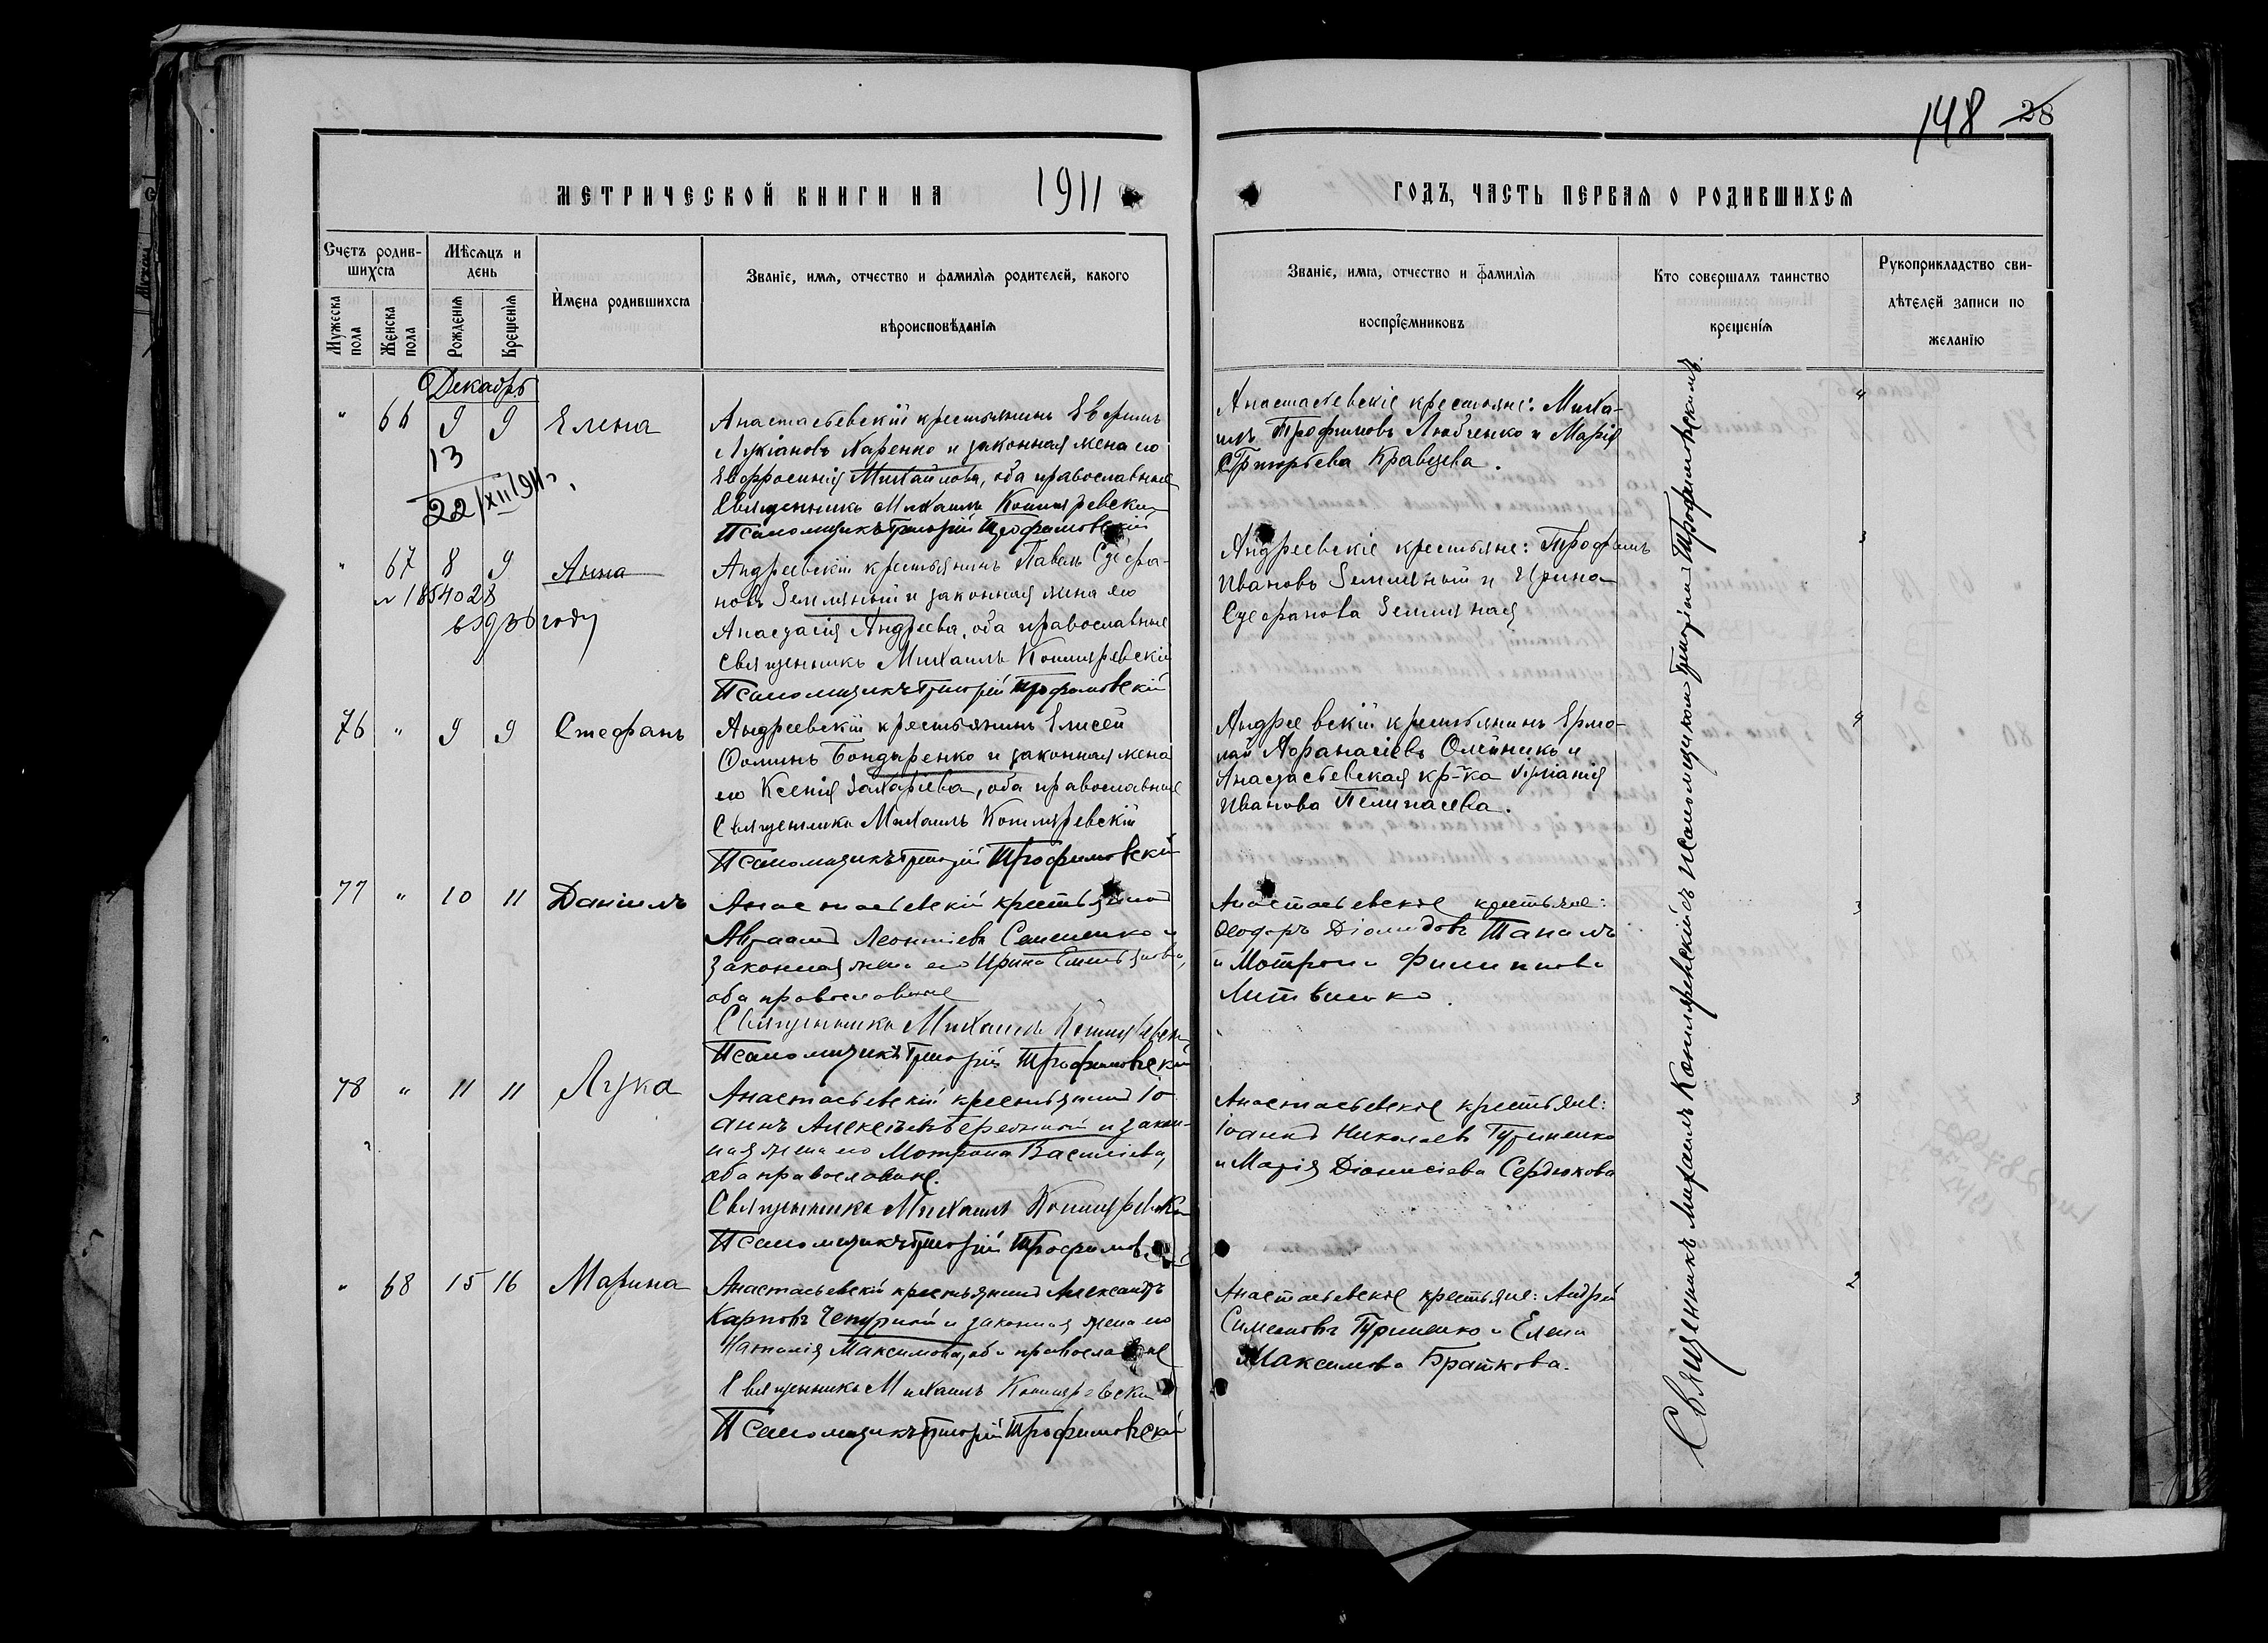 148 28
МЕТРИЧЕСКОЙ КНИГИ НА 1911
ГОДЪ, ЧАСТЬ ПЕРВАЯ О РОДИВШИХСЯ
Счетъ родив-
шихся
Мужеска пола
Женска пола
Мѣсяцъ и
день
Рожденія
Крещенія
Имена родившихся
Званіе, имя, отчество и фамилія родителей, какого
вѣроисповѣданія
Званіе, имя, отчество и фамилія
воспріемниковъ
Кто совершалъ таинство
крещенія
Рукоприкладство сви-
дѣтелей записи по
желанію
Декабрь
" 66 9 9 Елена
13
22/XII 1911 г.
Анастасьевскій крестьянинъ
Лукіановъ Харенко и законная жена его
Евфросинія Михайлова, оба православные
Священникъ Михаилъ Котляревскій
Псаломщикъ Григорій Трофимовскій
Анастасьевскіе крестьяне: Миха-
илъ Трофимовъ Любченко и Марія
Григорьева Кравцева.
" 67 8 9 Анна
№ 1854028
в 1936 году
Андреевскій крестьянинъ Павелъ Стефа-
новъ Земляный и законная жена его
Анастасія Андреева, оба православные
Священникъ Михаилъ Котляревскій
Псаломщикъ Григорій Трофимовскій
Андреевскіе крестьяне: Трофимъ
Ивановъ Земляный и Ирина
Стефанова Земляная
76 " 9 9 Стефанъ
Андреевскій крестьянинъ Елисей
Фоминъ Бондаренко и законная жена
его Ксенія Захаріева, оба православные
Священникъ Михаилъ Котляревскій
Псаломщикъ Григорій Трофимовскій
Андреевскій крестьянинъ Ермо-
лай Афанасіевъ Олейникъ и
Анастасьевская кр-ка
Иванова Пелипасева.
77 " 10 11 Даніилъ
Анастасьевскій крестьянинъ
Авраамъ Леонтіевъ Семененко и
законная жена его Ирина Емельянова,
оба православные
Священникъ Михаилъ Котляревскій
Псаломщикъ Григорій Трофимовскій
Анастасьевскіе крестьяне:
Ѳеодоръ Діомидовъ Тапалъ
и Мотрона Филиппова
Литвиненко.
78 " 11 11 Лука
Анастасьевскій крестьянинъ Іо
аннъ Алексѣевъ Бережной и закон-
ная жена его Мотрона Василіева,
оба православные.
Священникъ Михаилъ Котляревскій
Псаломщикъ Григорій Трофимовскій
Анастасьевскіе крестьяне:
Іоаннъ Николаевъ Гуриненко
и Марія Діонисіева Сердюкова
" 68 15 16 Марина
Анастасьевскій крестьянинъ Александръ
Карповъ Чепурной и законная жена его
Наталія Максимова, оба православные
Священникъ Михаилъ Котляревскій
Псаломщикъ Григорій Трофимовскій
Анастасьевскіе крестьяне: Андрей
Симеоновъ Гуриненко и Елена
Максимова Браткова.
Священникъ Михаилъ Котляревскій съ псаломщикомъ Григоріемъ Трофимовскимъ.